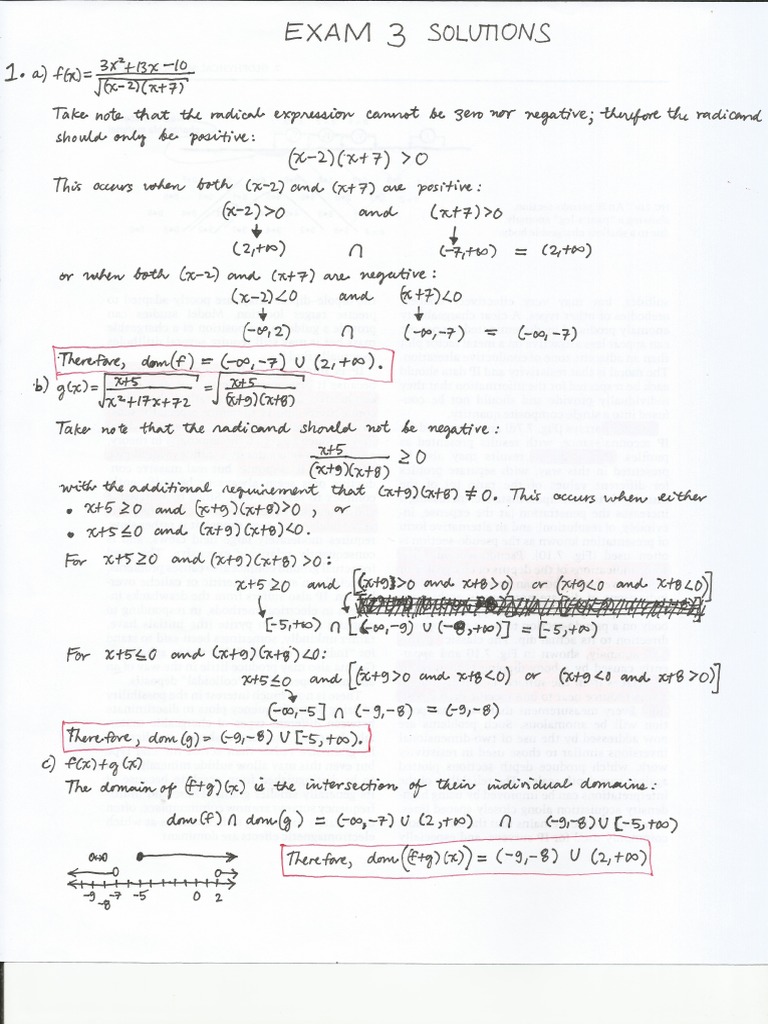 EXAM 3 SOLUTIONS
1. a) f(x) = (3x²+13x−10)/√((x−2)(x+7))
Take note that the radical expression cannot be zero nor negative; therefore the radicand
should only be positive:
(x−2)(x+7) > 0
This occurs when both (x−2) and (x+7) are positive:
(x−2)>0 and (x+7)>0
↓ ↓
(2,+∞) ∩ (−7,+∞) = (2,+∞)
or when both (x−2) and (x+7) are negative:
(x−2)<0 and (x+7)<0
↓ ↓
(−∞,2) ∩ (−∞,−7) = (−∞,−7)
Therefore, dom(f) = (−∞,−7) ∪ (2,+∞).
b) g(x) = √((x+5)/(x²+17x+72)) = √((x+5)/((x+9)(x+8)))
Take note that the radicand should not be negative:
(x+5)/((x+9)(x+8)) ≥ 0
with the additional requirement that (x+9)(x+8) ≠ 0. This occurs when either
• x+5 ≥ 0 and (x+9)(x+8)>0, or
• x+5 ≤ 0 and (x+9)(x+8)<0.
For x+5≥0 and (x+9)(x+8) >0:
x+5≥0 and [(x+9)>0 and x+8>0) or (x+9<0 and x+8<0)]
[−5,+∞) ∩ [(−∞,−9) ∪ (−8,+∞)] = [−5,+∞)
For x+5≤0 and (x+9)(x+8)<0:
x+5≤0 and [(x+9>0 and x+8<0) or (x+9<0 and x+8>0)]
(−∞,−5] ∩ (−9,−8) = (−9,−8)
Therefore, dom(g) = (−9,−8) ∪ [−5,+∞).
c) f(x)+g(x)
The domain of (f+g)(x) is the intersection of their individual domains:
dom(f) ∩ dom(g) = (−∞,−7) ∪ (2,+∞) ∩ (−9,−8) ∪ [−5,+∞)
Therefore, dom((f+g)(x)) = (−9,−8) ∪ (2,+∞)
−9 −8 −7 −5 0 2